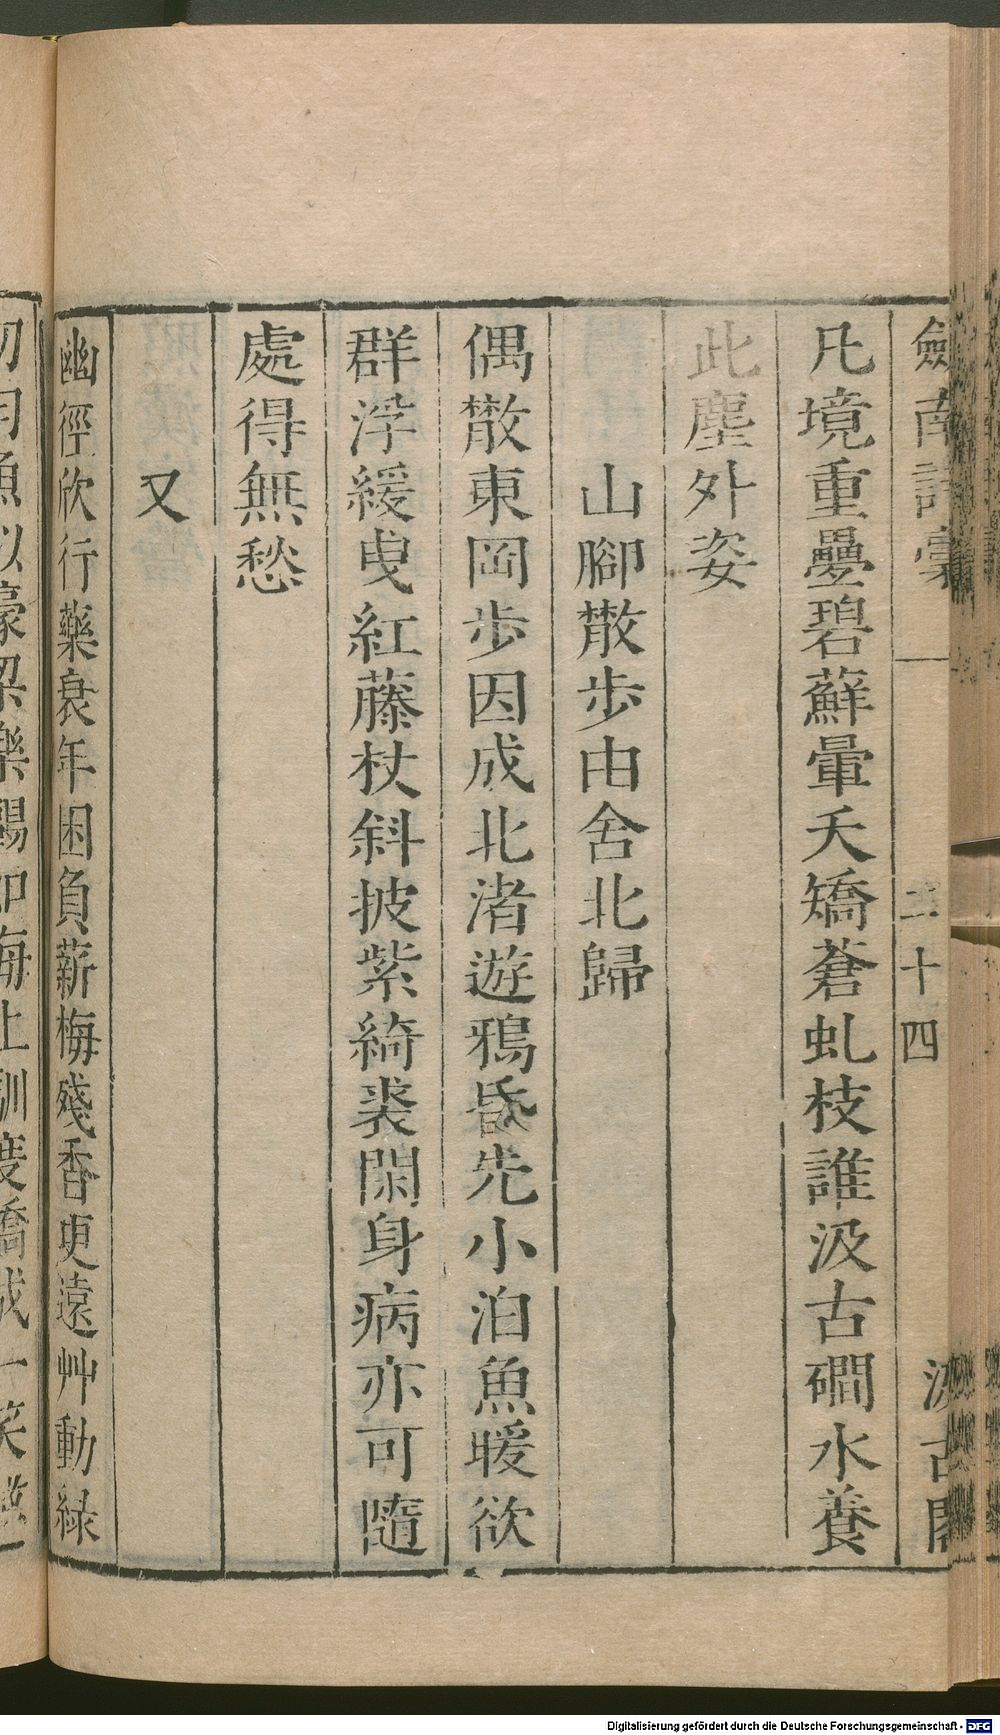 劍南詩稾
二十四
汲古閣
凡境重疊碧蘚暈夭矯蒼虬枝誰汲古磵水養
此塵外姿
山腳散步由舍北歸
偶散東岡步因成北渚遊鴉昏先小泊魚暖欲
群浮緩曳紅藤杖斜披紫綺裘閑身病亦可隨
處得無愁
又
幽徑欣行藥衰年困負薪梅殘香更遠艸動綠
Digitalisierung gefördert durch die Deutsche Forschungsgemeinschaft - DFG